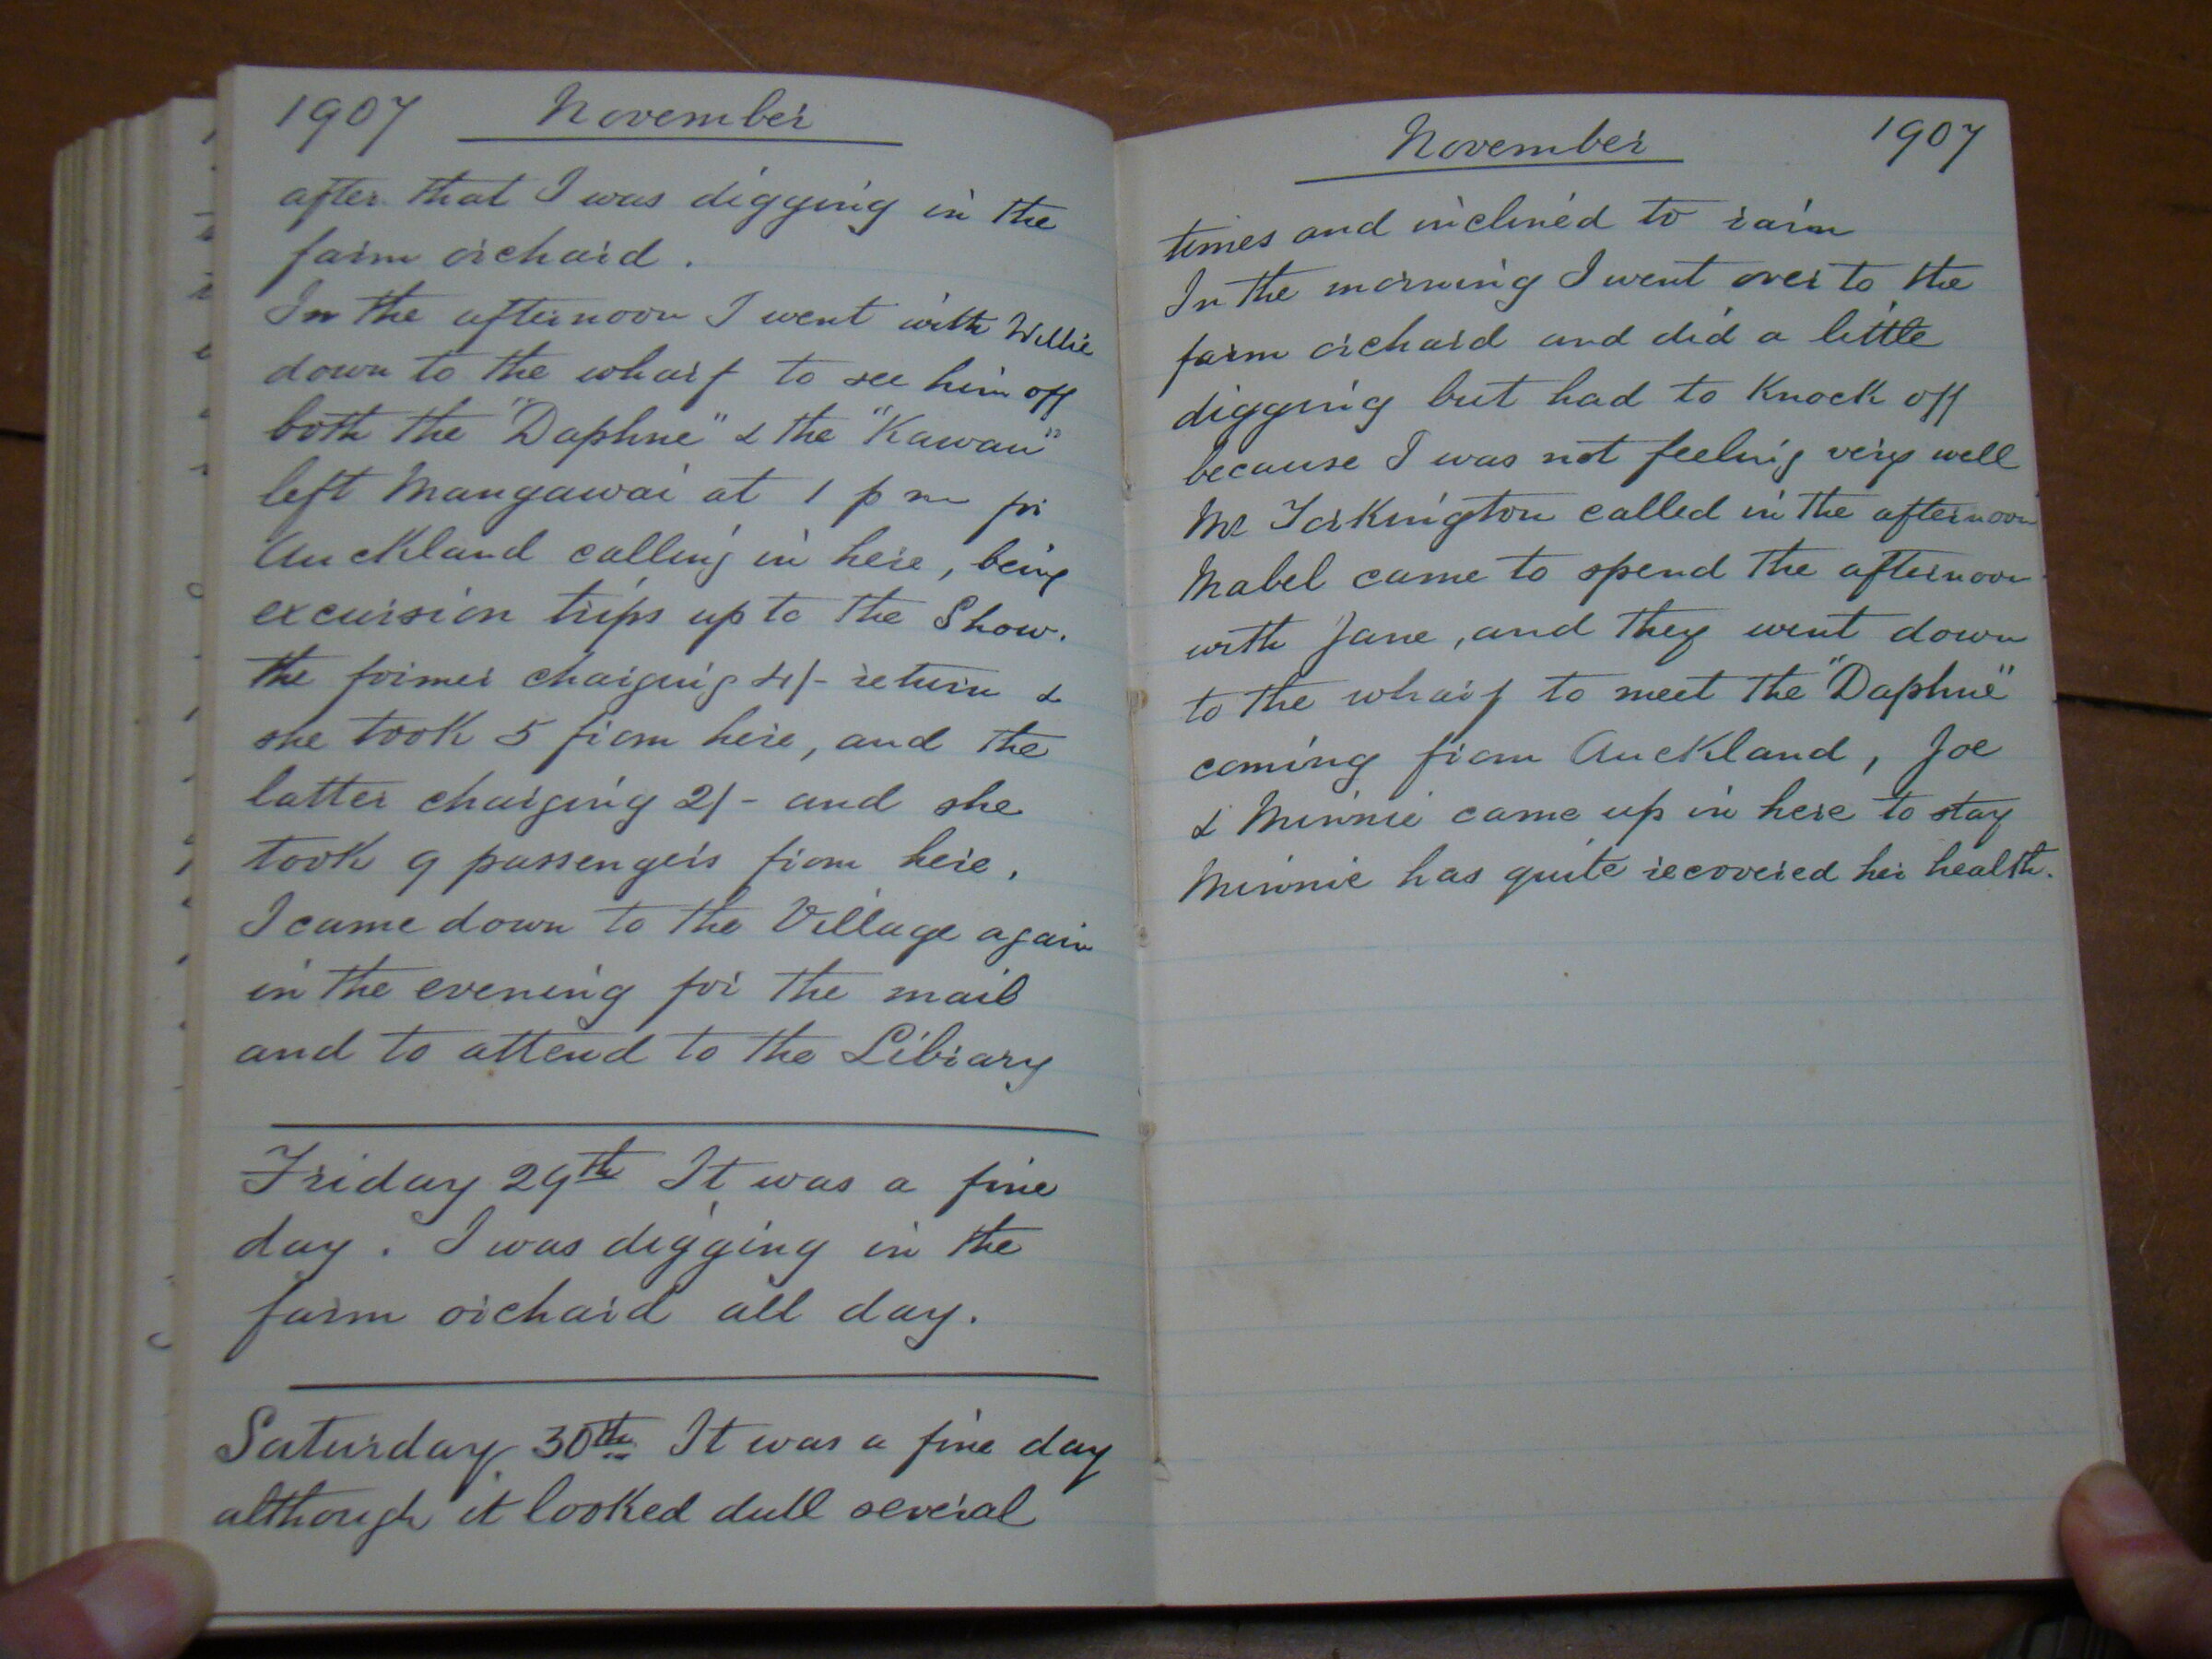 1907 November
after that I was digging in the
farm orchard.
In the afternoon I went with Willie
down to the wharf to see him off
both the "Daphne" & the "Kawau"
left Mangawai at 1 pm for
Auckland calling in here, being
excursion trips up to the Show.
the former charging 4/- return &
she took 5 from here, and the
latter charging 2/- and she
took 9 passengers from here.
I came down to the Village again
in the evening for the mail
and to attend to the Library
Friday 29th It was a fine
day. I was digging in the
farm orchard all day.
Saturday 30th It was a fine day
although it looked dull several
November 1907
times and inclined to rain
In the morning I went over to the
farm orchard and did a little
digging but had to knock off
because I was not feeling very well
Mr Torkington called in the afternoon
Mabel came to spend the afternoon
with Jane, and they went down
to the wharf to meet the "Daphne"
coming from Auckland, Joe
& Minnie came up in here to stay
Minnie has quite recovered her health.